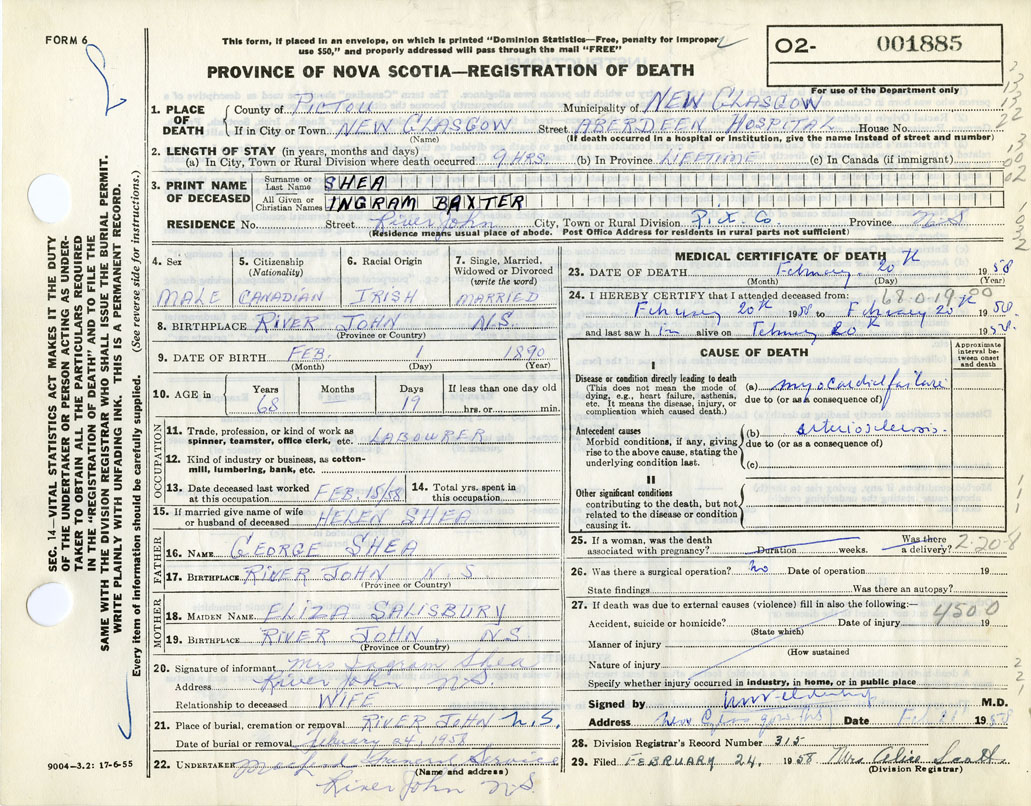 FORM 6
This form, if placed in an envelope, on which is printed "Dominion Statistics—Free, penalty for improper
use $50," and properly addressed will pass through the mail "FREE"
O2- 001885
PROVINCE OF NOVA SCOTIA—REGISTRATION OF DEATH
For use of the Department only
1. PLACE OF DEATH
County of PICTOU Municipality of NEW GLASGOW
If in City or Town NEW GLASGOW Street ABERDEEN HOSPITAL House No.
(Name) (If death occurred in a hospital or institution, give the name instead of street and number)
2. LENGTH OF STAY (in years, months and days)
(a) In City, Town or Rural Division where death occurred 9 HRS. (b) In Province LIFETIME (c) In Canada (if immigrant)
3. PRINT NAME OF DECEASED
Surname or Last Name SHEA
All Given or Christian Names INGRAM BAXTER
RESIDENCE No. Street River John City, Town or Rural Division Pict. Co. Province N.S
(Residence means usual place of abode. Post Office Address for residents in rural parts not sufficient)
4. Sex
MALE
5. Citizenship
(Nationality)
CANADIAN
6. Racial Origin
IRISH
7. Single, Married,
Widowed or Divorced
(write the word)
MARRIED
8. BIRTHPLACE RIVER JOHN N.S.
(Province or Country)
9. DATE OF BIRTH FEB. 1 1890
(Month) (Day) (Year)
10. AGE in
Years Months Days If less than one day old
68 — 19 hrs. or min.
OCCUPATION
11. Trade, profession, or kind of work as
spinner, teamster, office clerk, etc. LABOURER
12. Kind of industry or business, as cotton-
mill, lumbering, bank, etc.
13. Date deceased last worked
at this occupation FEB. 15/58
14. Total yrs. spent in
this occupation
15. If married give name of wife
or husband of deceased HELEN SHEA
FATHER
16. NAME GEORGE SHEA
17. BIRTHPLACE RIVER JOHN N.S.
(Province or Country)
MOTHER
18. MAIDEN NAME ELIZA SALISBURY
19. BIRTHPLACE RIVER JOHN, NS
(Province or Country)
20. Signature of informant Mrs Ingram Shea
Address River John N.S.
Relationship to deceased WIFE
21. Place of burial, cremation or removal RIVER JOHN N.S.
Date of burial or removal February 24, 1958
22. UNDERTAKER Funeral Service
(Name and address)
River John N.S.
9004—3.2: 17-6-55
SEC. 14—VITAL STATISTICS ACT MAKES IT THE DUTY
OF THE UNDERTAKER OR PERSON ACTING AS UNDER-
TAKER TO OBTAIN ALL THE PARTICULARS REQUIRED
IN THE "REGISTRATION OF DEATH" AND TO FILE THE
SAME WITH THE DIVISION REGISTRAR WHO SHALL ISSUE THE BURIAL PERMIT.
WRITE PLAINLY WITH UNFADING INK. THIS IS A PERMANENT RECORD.
Every item of information should be carefully supplied. (See reverse side for instructions.)
MEDICAL CERTIFICATE OF DEATH
23. DATE OF DEATH February 20th 1958
(Month) (Day) (Year)
24. I HEREBY CERTIFY that I attended deceased from: 68-0-19-00
February 20th 1958 to February 20th 1958
and last saw him alive on February 20th 1958
CAUSE OF DEATH
Approximate
interval be-
tween onset
and death
I
Disease or condition directly leading to death
(This does not mean the mode of
dying, e.g., heart failure, asthenia,
etc. It means the disease, injury, or
complication which caused death.)
(a) myocardial failure
due to (or as a consequence of)
Antecedent causes
Morbid conditions, if any, giving
rise to the above cause, stating the
underlying condition last.
(b) arteriosclerosis.
due to (or as a consequence of)
(c)
II
Other significant conditions
contributing to the death, but not
related to the disease or condition
causing it.
25. If a woman, was the death
associated with pregnancy? Duration weeks. Was there
a delivery? 2-20-8
26. Was there a surgical operation? no Date of operation 19
State findings Was there an autopsy?
27. If death was due to external causes (violence) fill in also the following:— 4500
Accident, suicide or homicide? Date of injury 19
(State which)
Manner of injury
(How sustained
Nature of injury
Specify whether injury occurred in industry, in home, or in public place
Signed by M.D.
Address New Glasgow NS Date 1958
28. Division Registrar's Record Number 315
29. Filed FEBRUARY 24, 1958 Mrs Alice Scott
(Division Registrar)